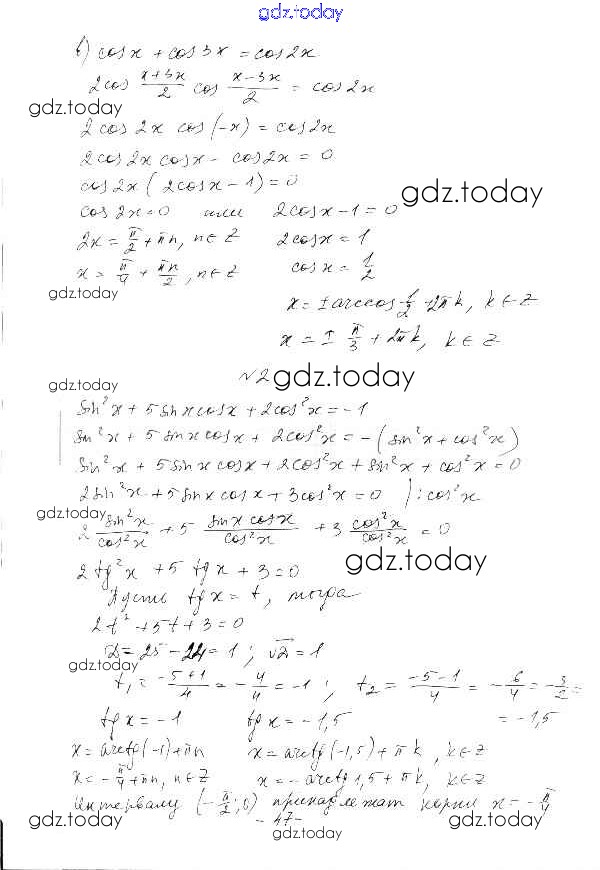 gdz.today
в) cos x + cos 3x = cos 2x
2 cos (x+3x)/2 cos (x-3x)/2 = cos 2x
gdz.today
2 cos 2x cos (-x) = cos 2x
2 cos 2x cos x - cos 2x = 0
cos 2x (2 cos x - 1) = 0
gdz.today
cos 2x = 0 или 2 cos x - 1 = 0
2x = π/2 + πn, n∈Z 2 cos x = 1
x = π/4 + πn/2, n∈Z cos x = 1/2
gdz.today
x = ± arccos 1/2 + 2πk, k∈Z
x = ± π/3 + 2πk, k∈Z
№2
gdz.today
gdz.today
sin²x + 5 sin x cos x + 2 cos²x = -1
sin²x + 5 sin x cos x + 2 cos²x = -(sin²x + cos²x)
sin²x + 5 sin x cos x + 2 cos²x + sin²x + cos²x = 0
2 sin²x + 5 sin x cos x + 3 cos²x = 0 ) : cos²x
gdz.today
2 sin²x/cos²x + 5 sin x cos x/cos²x + 3 cos²x/cos²x = 0
gdz.today
2 tg²x + 5 tg x + 3 = 0
Пусть tg x = t, тогда
2t² + 5t + 3 = 0
D = 25 - 24 = 1; √D = 1
gdz.today
t₁ = (-5+1)/4 = -4/4 = -1; t₂ = (-5-1)/4 = -6/4 = -3/2 =
= -1,5
tg x = -1 tg x = -1,5
x = arctg(-1) + πn x = arctg(-1,5) + πk, k∈Z
x = -π/4 + πn, n∈Z x = -arctg 1,5 + πk, k∈Z
gdz.today
gdz.today
Интервалу (-π/2; 0) принадлежат корни x = -π/4
- 47 -
gdz.today
gdz.today
gdz.today